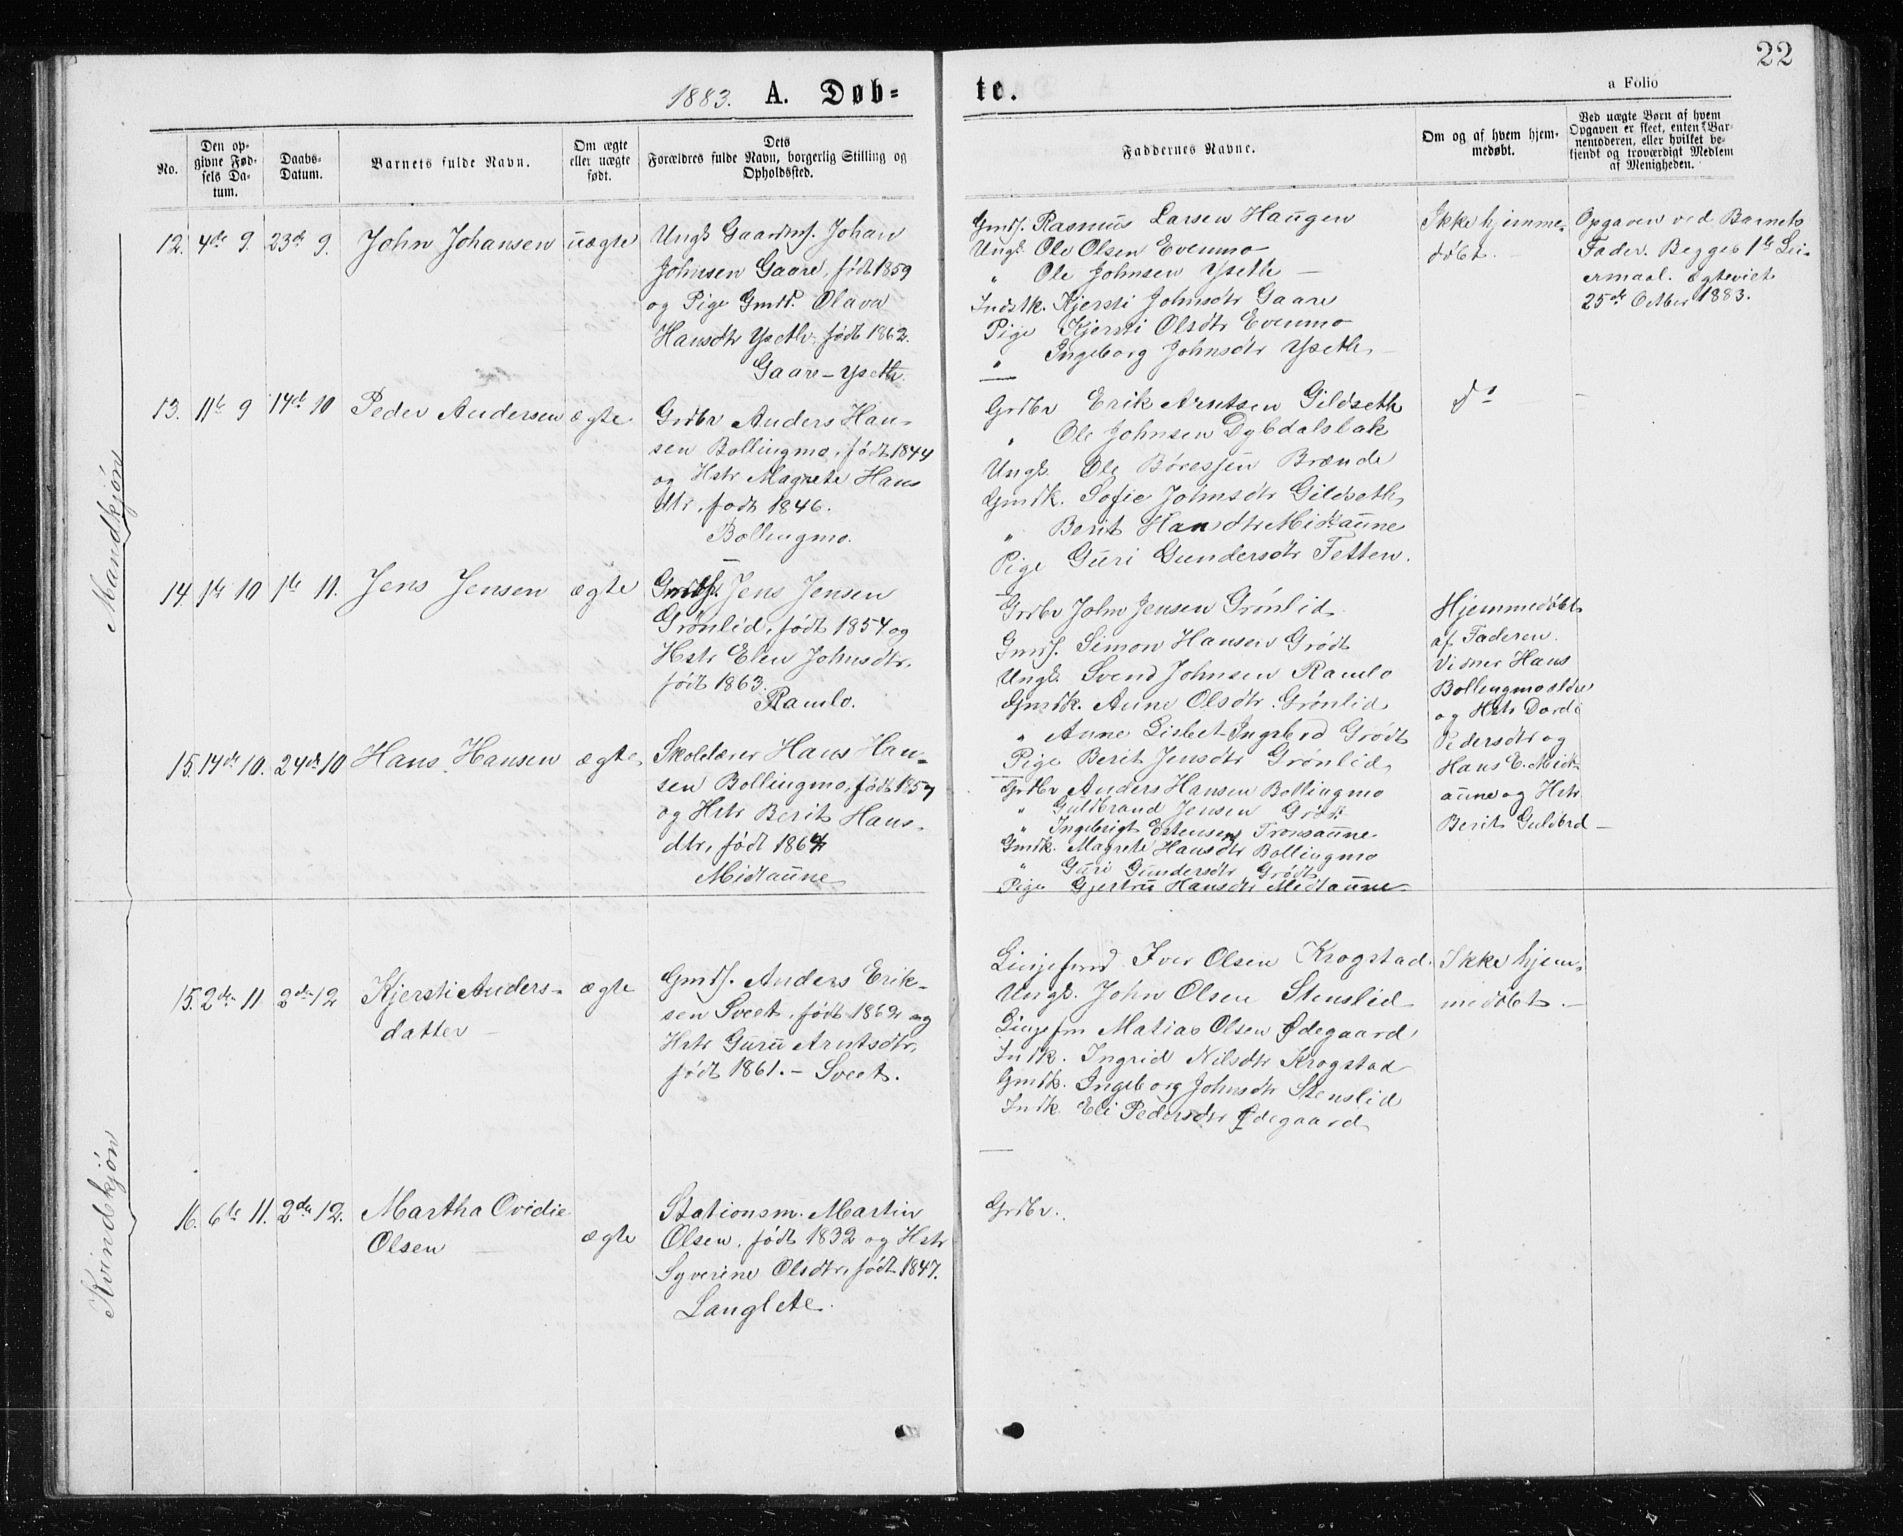 22
1883. A. Døb-
te.
a Folio
No.
Den op-
givne Fød-
sels Da-
tum.
Daabs-
Datum.
Barnets fulde Navn.
Om ægte
eller uægte
født.
Dets
Forældres fulde Navn, borgerlig Stilling og
Opholdssted.
Faddernes Navne.
Om og af hvem hjem-
medøbt.
Ved uægte Børn af hvem
Opgaven er skeet, enten Bar-
nemoderen, eller hvilket be-
kjendt og troværdigt Medlem
af Menigheden.
Mandkjøn
12. 4de 9. 23de 9. John Johansen uægte
Ungk. Gaardms. Johan
Johnsen Gaare, født 1859
og Pige Gmdd. Olava
Hansdtr Yseth født 1862.
Gaare - Yseth.
Gmds. Rasmus Larsen Haugen
Ungk. Ole Olsen Evenmo
" Ole Johnsen Yseth
Indstk. Kjersti Johnsdtr Gaare
Pige Kjersti Olsdtr Evenmo
" Ingeborg Johnsdtr Yseth
Ikke hjemme-
døbt.
Opgaven ved Barnets
Fader. Begges 1te Lei-
ermaal. Egteviet
25de Octber 1883.
13. 11te 9 14de 10 Peder Andersen ægte
Grdbr Anders Han-
sen Bollingmo, født 1844
og Hstr Magrete Hans
dtr, født 1846.
Bollingmo.
Grdbr Erik Arntsen Gildseth
" Ole Johnsen Dybdalsbak
Ungk. Ole Børessen Brænde
Gmdk. Sofie Johnsdtr Gildseth
" Berit Hansdtr Midtaune
Pige Guri Gundersdtr Fetten.
Do
14. 1te 10 1te 11. Jens Jensen ægte
Gmds. Jens Jensen
Grønlid, født 1854 og
Hstr Elen Johnsdtr,
født 1863.
Ramlo.
Grdbr John Jensen Grønlid
Gmds. Simon Hansen Grødt
Ungk. Svend Johnsen Ramlo
Gmdk. Anne Olsdtr Grønlid
" Anne Lisbet Ingebrd Grødt
Pige Berit Jensdtr Grønlid
Hjemmedøbt
af Faderen.
Vidner Hans
Bollingmo
og Hstr Dordi
Pedersdtr og
Hans E. Midt-
aune og Hstr
Berit Guldbrd
15. 14de 10. 24de 10 Hans Hansen ægte
Skolelærer Hans Han-
sen Bollingmo, født 1857
og Hstr Berit Hans-
dtr, født 1864
Midtaune
Grdbr Anders Hansen Bollingmo
" Guldbrand Jensen Grødt
" Ingebrigt Estensen Tronsaune
Gmdk. Magrete Hansdtr Bollingmo
" Guri Gundersdtr Grødt
Pige Gjertru Hansdtr Midtaune
Kvindekjøn
15. 2den 11 2den 12 Kjersti Anders-
datter
ægte
Gmds. Anders Erik-
sen Sveet, født 1862 og
Hstr Guru Arntsdtr,
født 1861. - Sveet.
Linjefmd Iver Olsen Krogstad
Ungk. John Olsen Stenslid
Linjefm Matias Olsen Ødegaard
Indk. Ingrid Nilsdtr Krogstad
Gmdk. Ingeborg Johnsdtr Stenslid
Indk. Eli Pedersdtr Ødegaard
Ikke hjem-
medøbt.
16. 6te 11. 2den 12. Martha Ovidie
Olsen
ægte
Stationsm. Martin
Olsen, født 1832 og Hstr
Syverine Olsdtr, født 1847.
Langlete.
Grdbr.